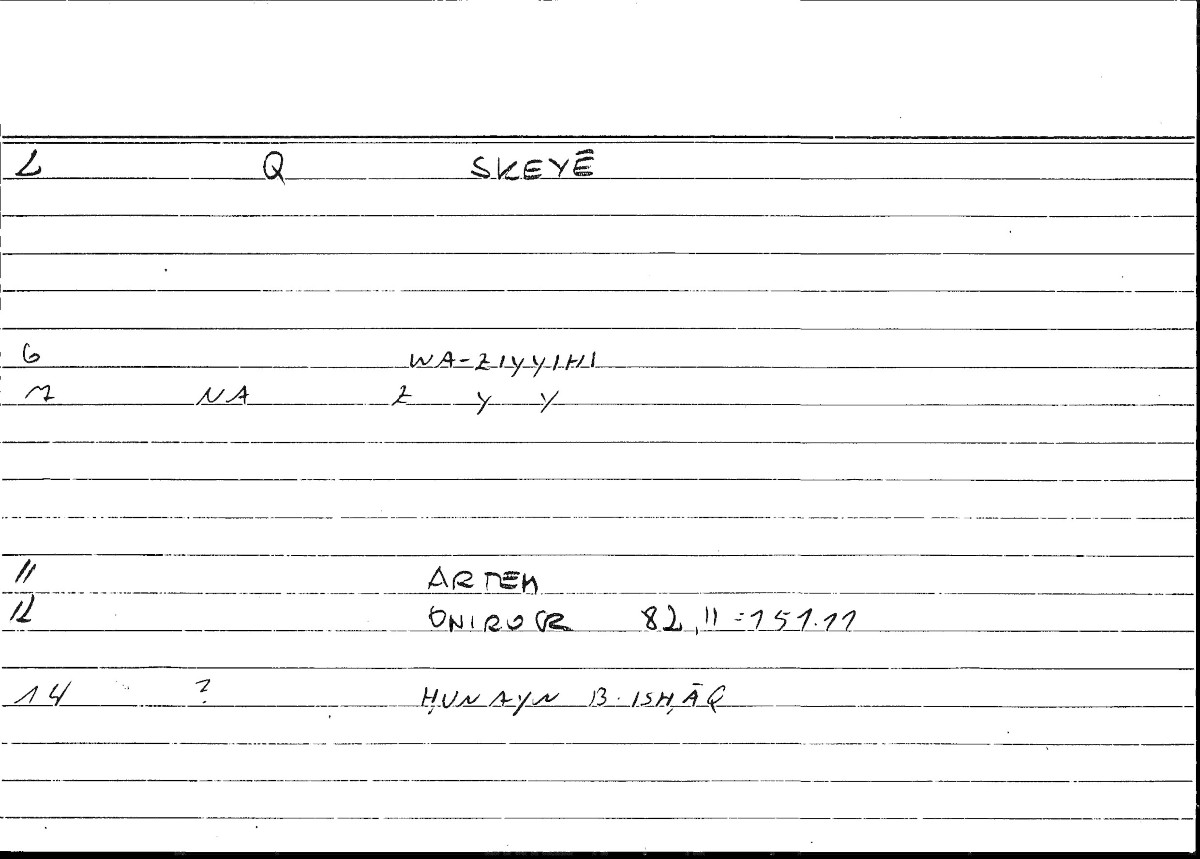 L Q SKEYĒ
6 WA-ZIYYIHI
7 NA Z Y Y
11 ARTEM
12 ONIROCR 82,11=151.11
14 ? ḤUNAYN B. ISḤĀQ